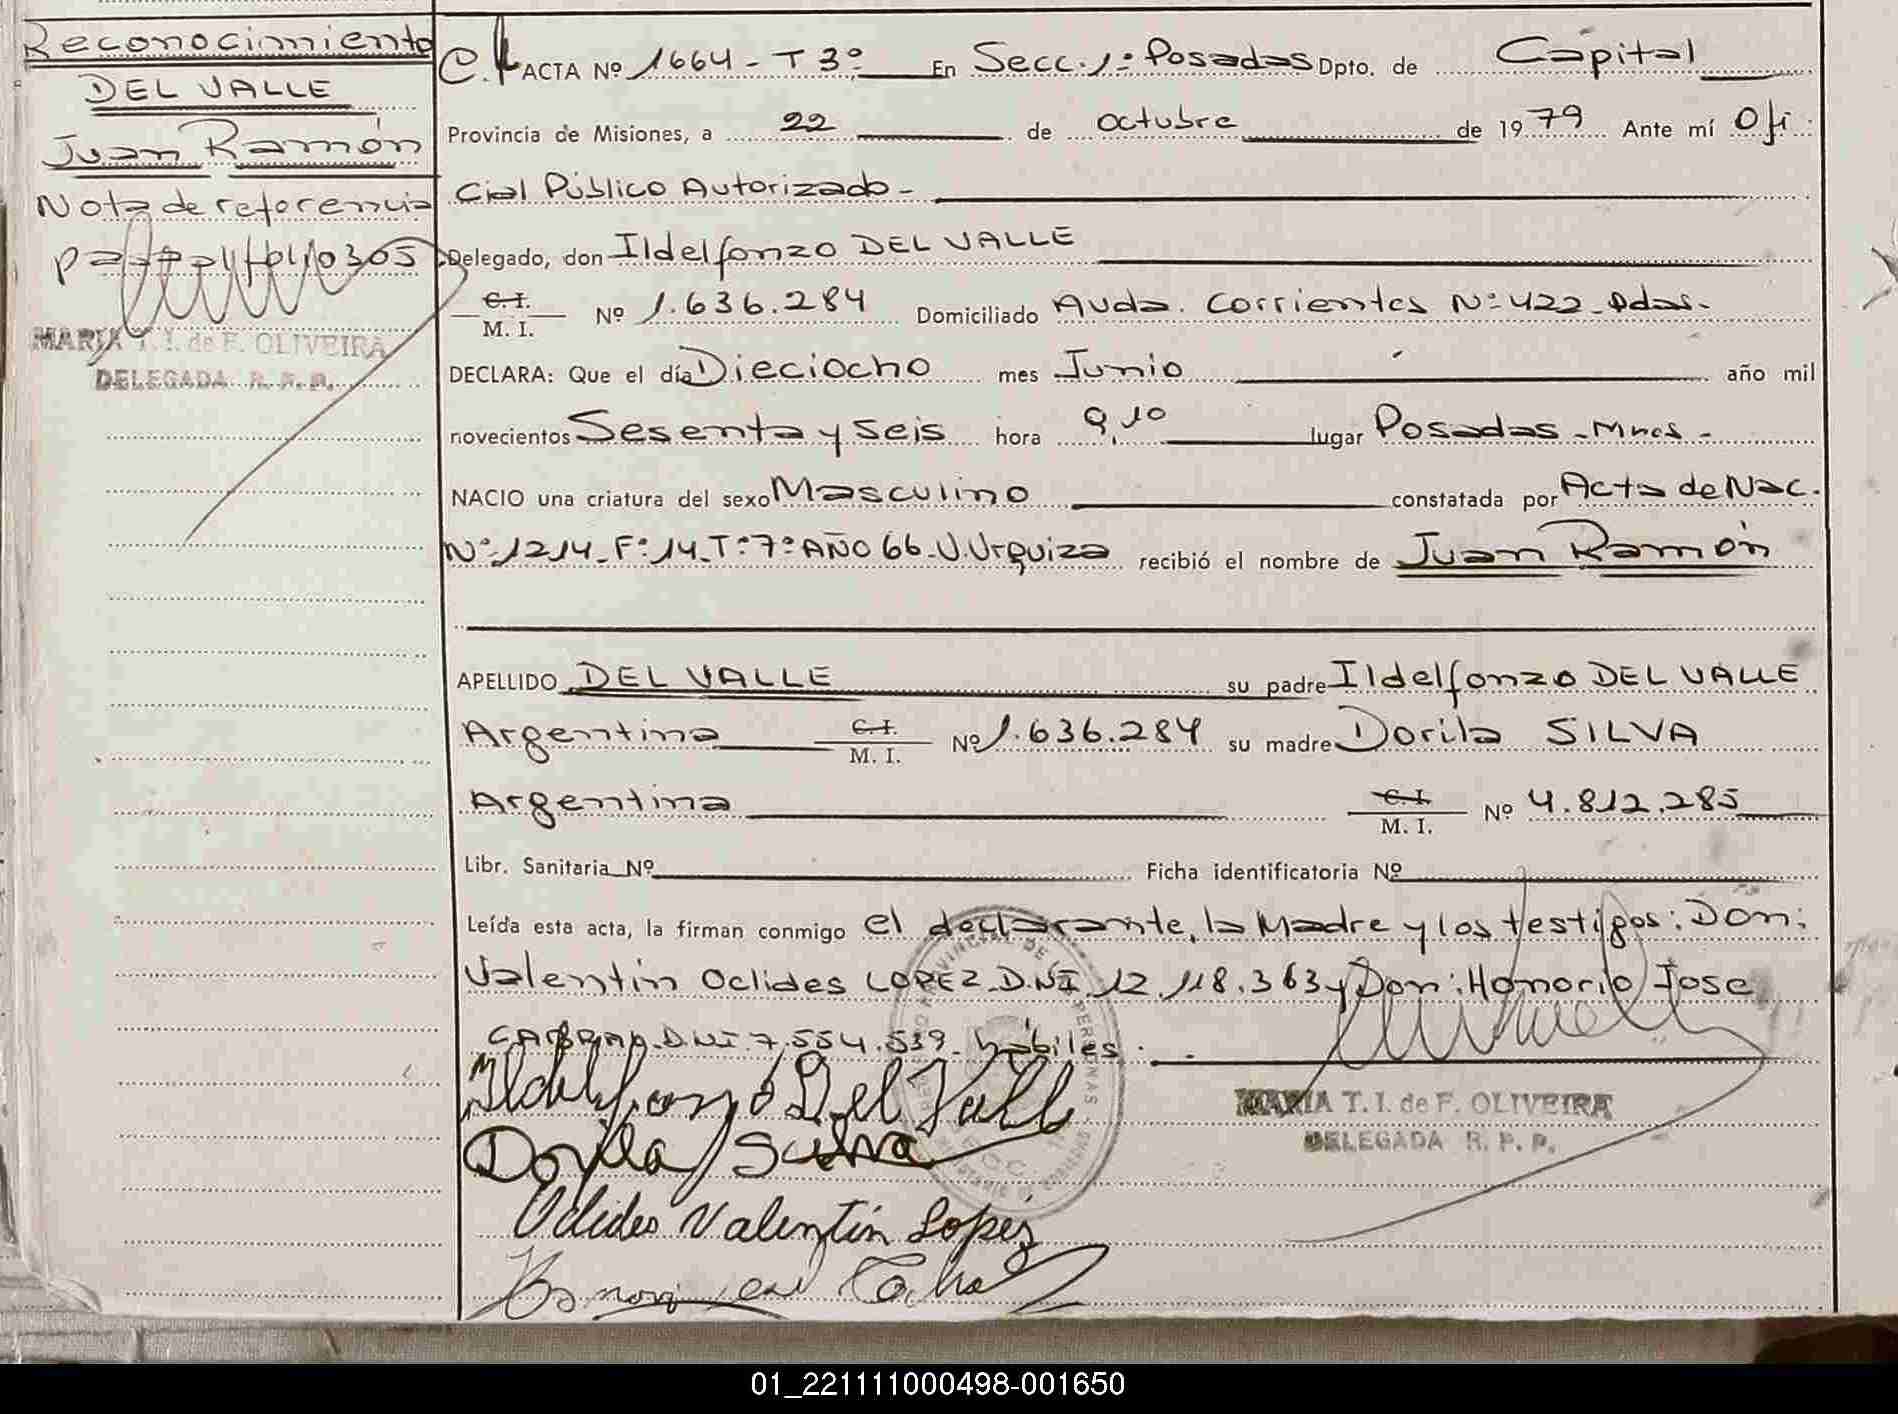 Reconocimiento
DEL VALLE
Juan Ramón
Nota de referencia
pasa al folio 305
MARIA T. I. de F. OLIVEIRA
DELEGADA R. P. P.
ACTA Nº 1664 - T 3º En Secc. 1º Posadas Dpto. de Capital
Provincia de Misiones, a 22 de octubre de 1979 Ante mí Ofi
cial Público Autorizado -
Delegado, don Ildelfonzo DEL VALLE
C.I.
M. I. Nº 1.636.284 Domiciliado Avda. Corrientes Nº 422 - Pdas -
DECLARA: Que el día Dieciocho mes Junio año mil
novecientos Sesenta y seis hora 9,10 lugar Posadas - Mnes -
NACIO una criatura del sexo Masculino constatada por Acta de Nac.
Nº 1214 - Fº 14 - Tº 7º AÑO 66 - V. Urquiza recibió el nombre de Juan Ramón
APELLIDO DEL VALLE su padre Ildelfonzo DEL VALLE
Argentina C.I. M. I. Nº 1.636.284 su madre Dorila SILVA
Argentina C.I. M. I. Nº 4.812.285
Libr. Sanitaria Nº Ficha identificatoria Nº
Leída esta acta, la firman conmigo el declarante, la Madre y los testigos: Don:
Valentín Oclides LOPEZ D.NI. 12.118.363 y Don: Honorio Jose
CABRAL D.NI. 7.554.539 - hábiles.
Ildelfonzo Del Valle
Dorila Silva
MARIA T. I. de F. OLIVEIRA
DELEGADA R. P. P.
Oclides Valentín Lopez
01_221111000498-001650